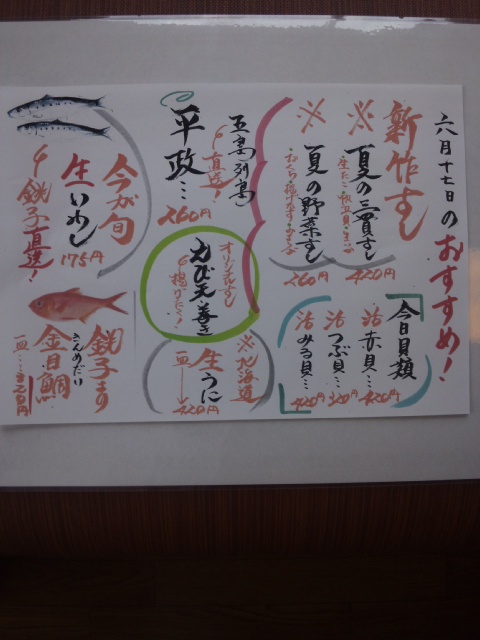 六月十七日のおすすめ!
新作すし
※夏の三貫すし
420円
※夏の野菜すし
260円
今日貝類
活赤貝…420円
活つぶ貝…320円
活みる貝…420円
五島列島
直送!
平政…
260円
オリジナルすし
えび天巻き
揚げたて!
※北海道
生うに
一皿→420円
今が旬
生いわし
175円
銚子直送!
銚子より
金目鯛
きんめだい
一皿…320円